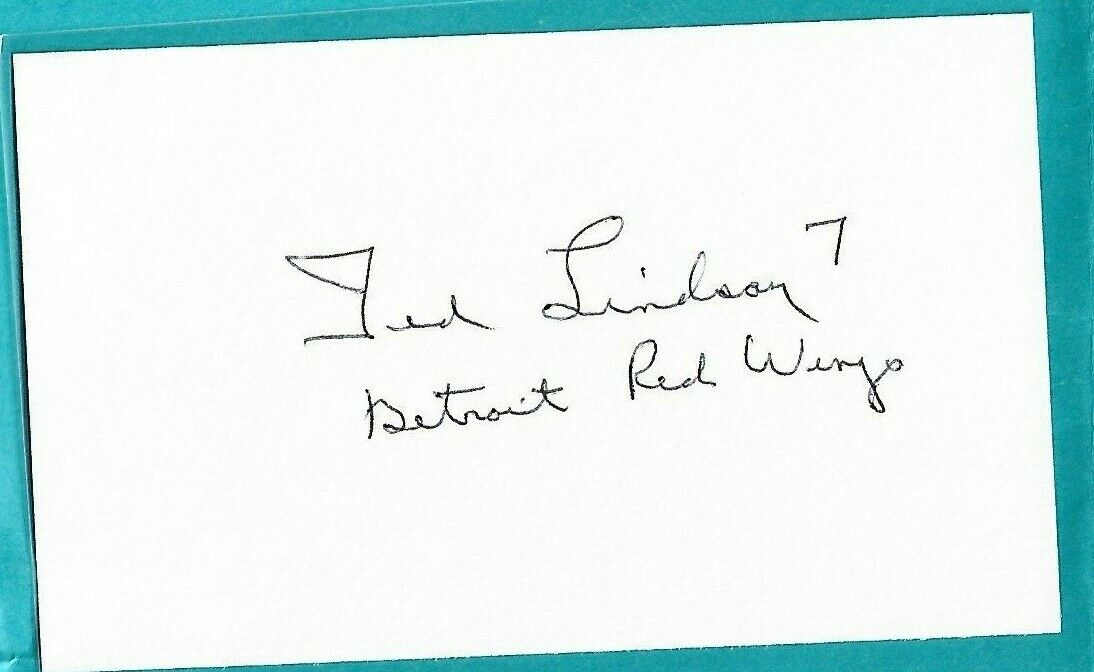 Ted Lindsay 7
Detroit Red Wings